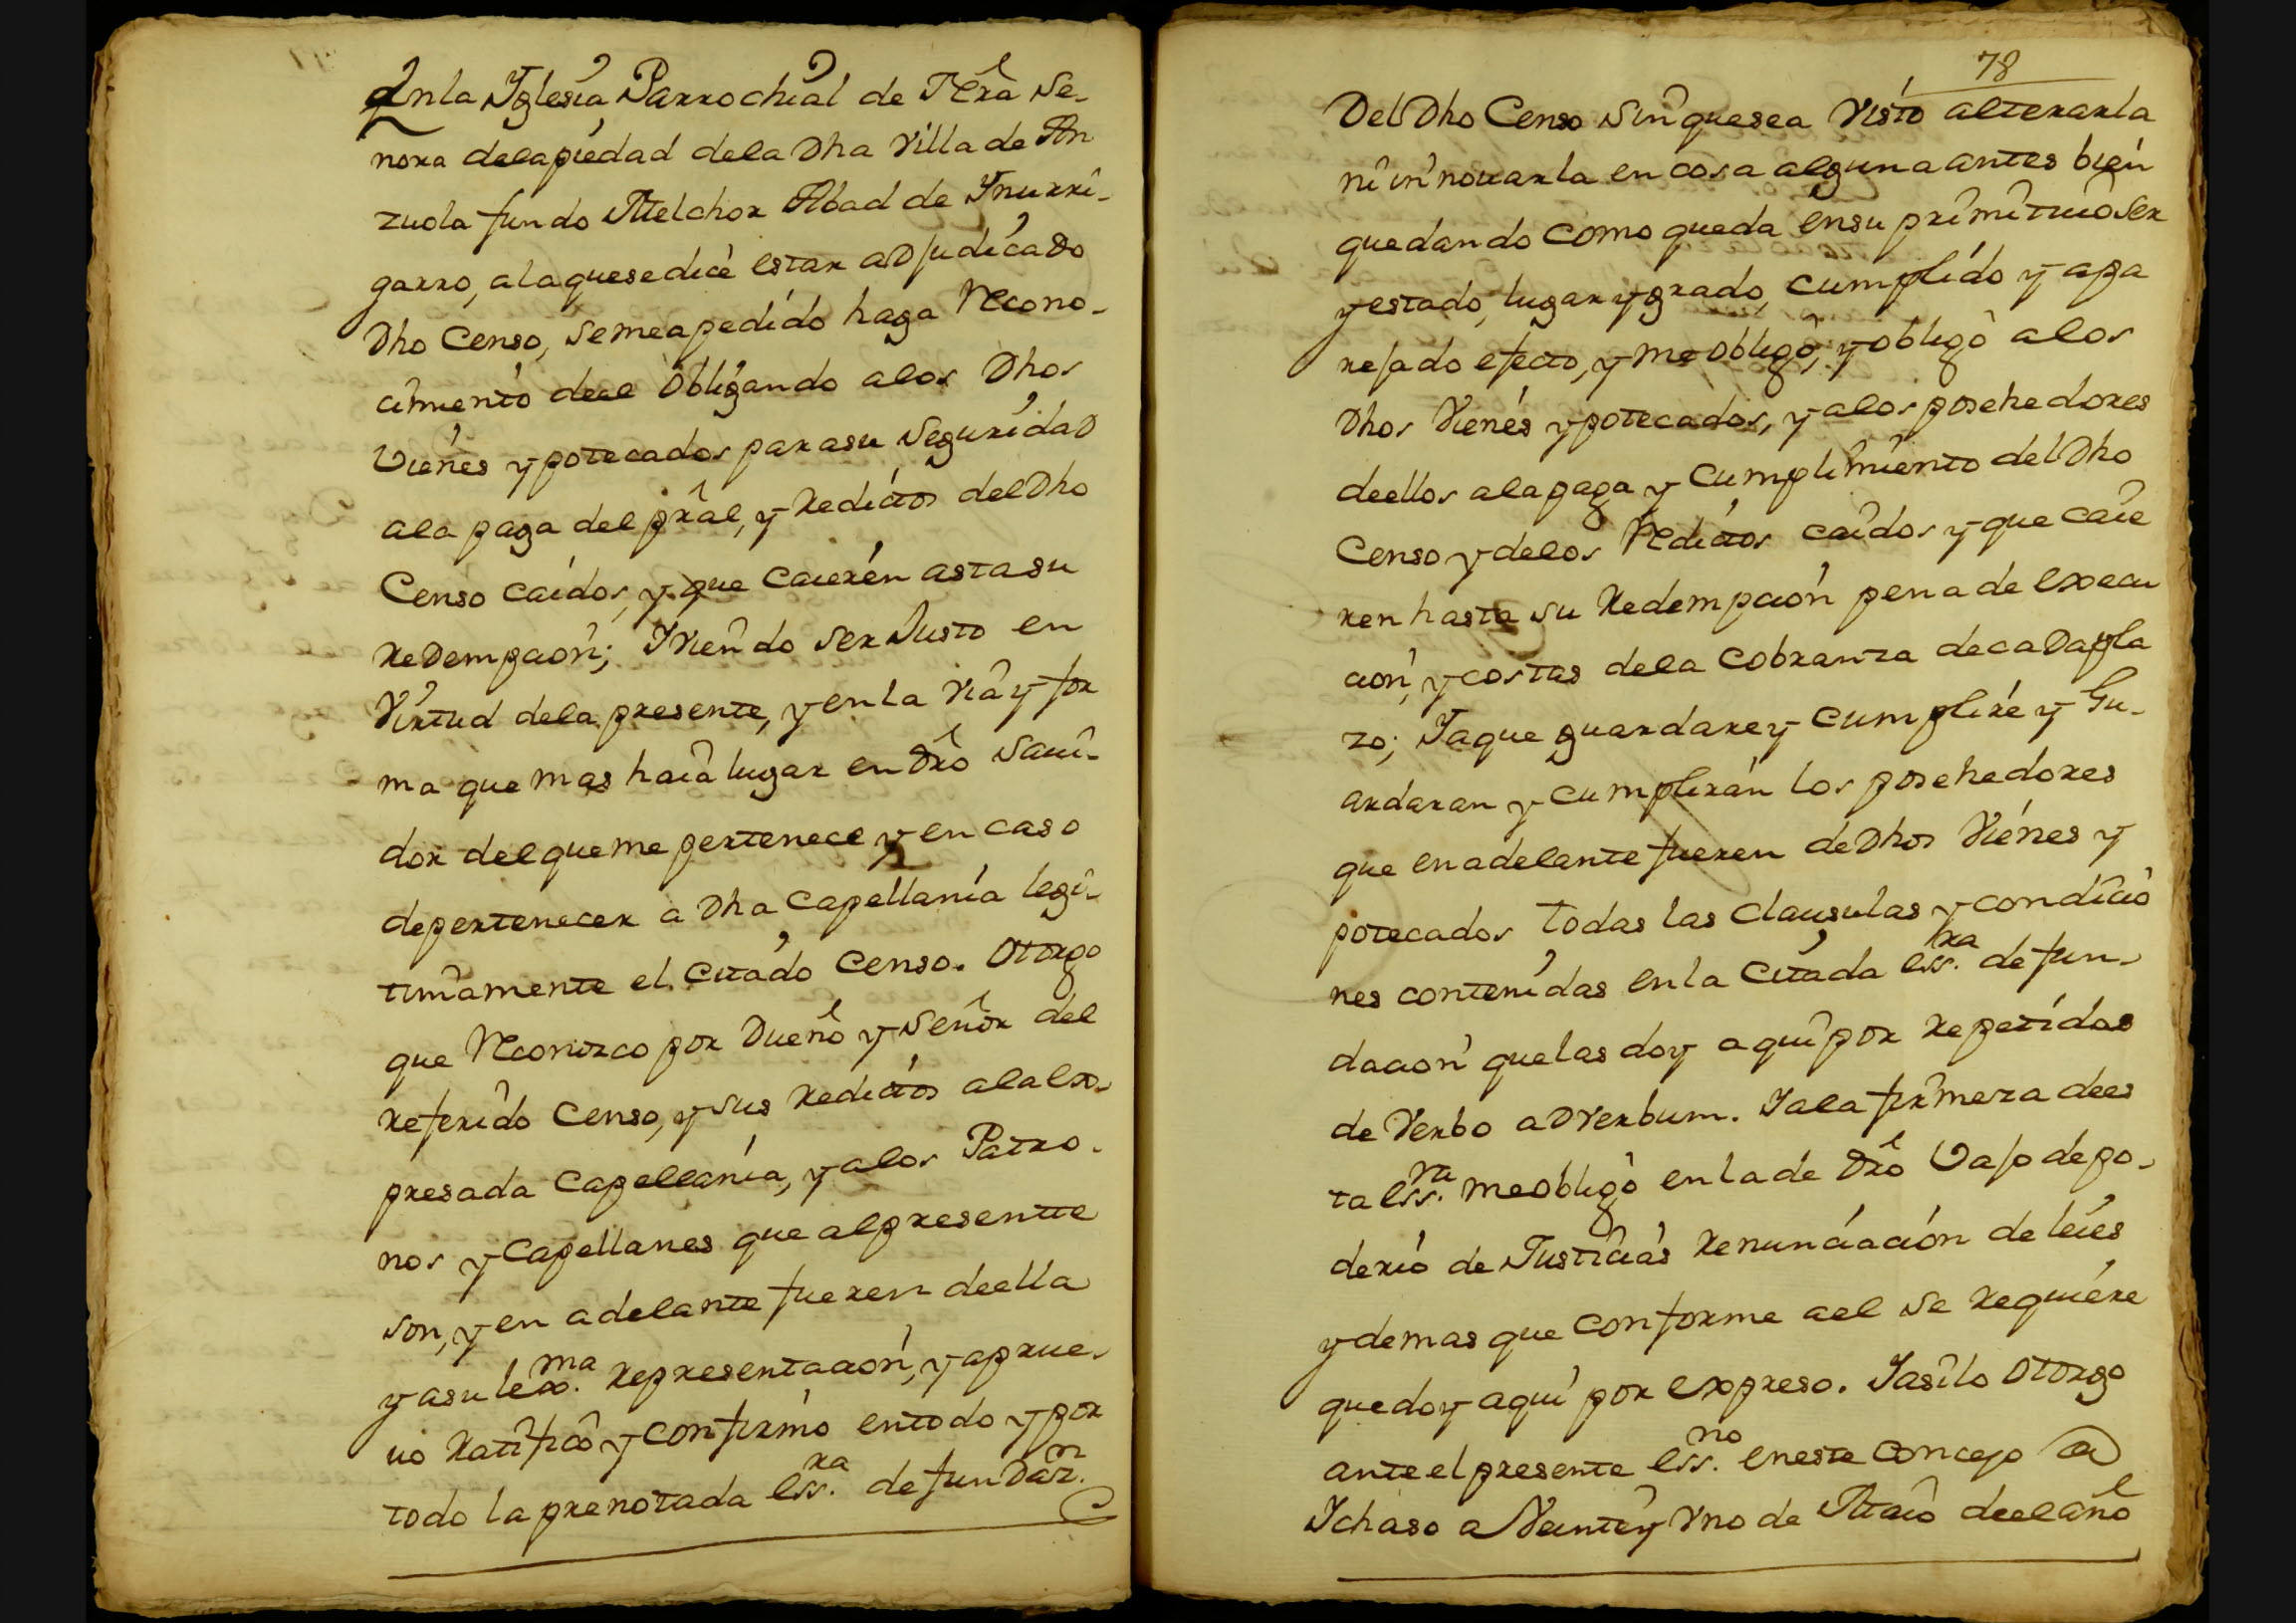 En la Yglesia Parrochial de Nrâ Se-
ñora dela piedad dela Dha Villa de An
zuola fundo Melchor Abad de Ynurri-
garro, ala que se dice estar adjudicado
Dho Censo, se me a pedido haga Recono-
cimiento deel Obligando alos Dhos
Vienes ypotecados para su Seguridad
ala paga del prâl, y Redictos del Dho
Censo caidos, y que caieren asta su
Redempcion; Y Viendo ser Justo en
Virtud dela presente, y en la via y for
ma que mas haia lugar en Drô Savi-
dor del que me pertenece y en caso
de pertenecer a Dha Capellania legi-
timamente el citado Censo. Otorgo
que Reconozco por Dueño y Señor del
referido Censo, y sus Redictos ala ex-
presada Capellania, y alos Patro-
nos y Capellanes que al presentte
son, y en adelante fueren deella
y asu lex.ma representacion, y aprue-
uo Ratifico y confirmo en todo y por
todo la prenotada ess.ra de fundaz.n
78
Del Dho Censo sin que sea visto alterarla
ni innouarla en cosa alguna antes bien
quedando como queda en su primitiuo ser
y estado, lugar y grado, cumplido y apa
rejado efecto, y me obligo, y obligo alos
Dhos Vienes ypotecados, y alos posehedores
deellos ala paga y cumplimiento del Dho
Censo y delos Redictos caidos y que caie
ren hasta su Redempcion pena de execu
cion, y costas dela Cobranza de cada pla
zo; Y a que guardare y cumplire y Gu-
ardaran y cumpliran los posehedores
que en adelante fueren de Dhos Vienes y
potecados todas las clausulas y condicio
nes contenidas en la citada ess.ra de fun-
dacion que las doy aqui por repetidas
de Verbo adverbum. Y a la firmeza de es
ta ess.ra me obligo en la de Drô Vajo de po-
derio de Justicias Renunciacion de leies
y demas que conforme a el se requiere
que doy aqui por expreso. Y asi lo Otorgo
ante el presente ess.no en este concejo a
Ychaso a Veinte y Vno de Maio deel año